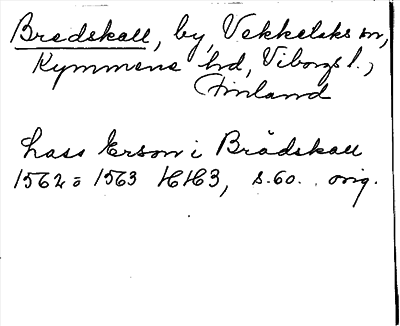 Bredskall, by, Vekkelaks sn,
Kymmene hd, Viborgs l.,
Finland
Lass Erson i Brädskall
1562 = 1563 HH3, s. 60. orig.